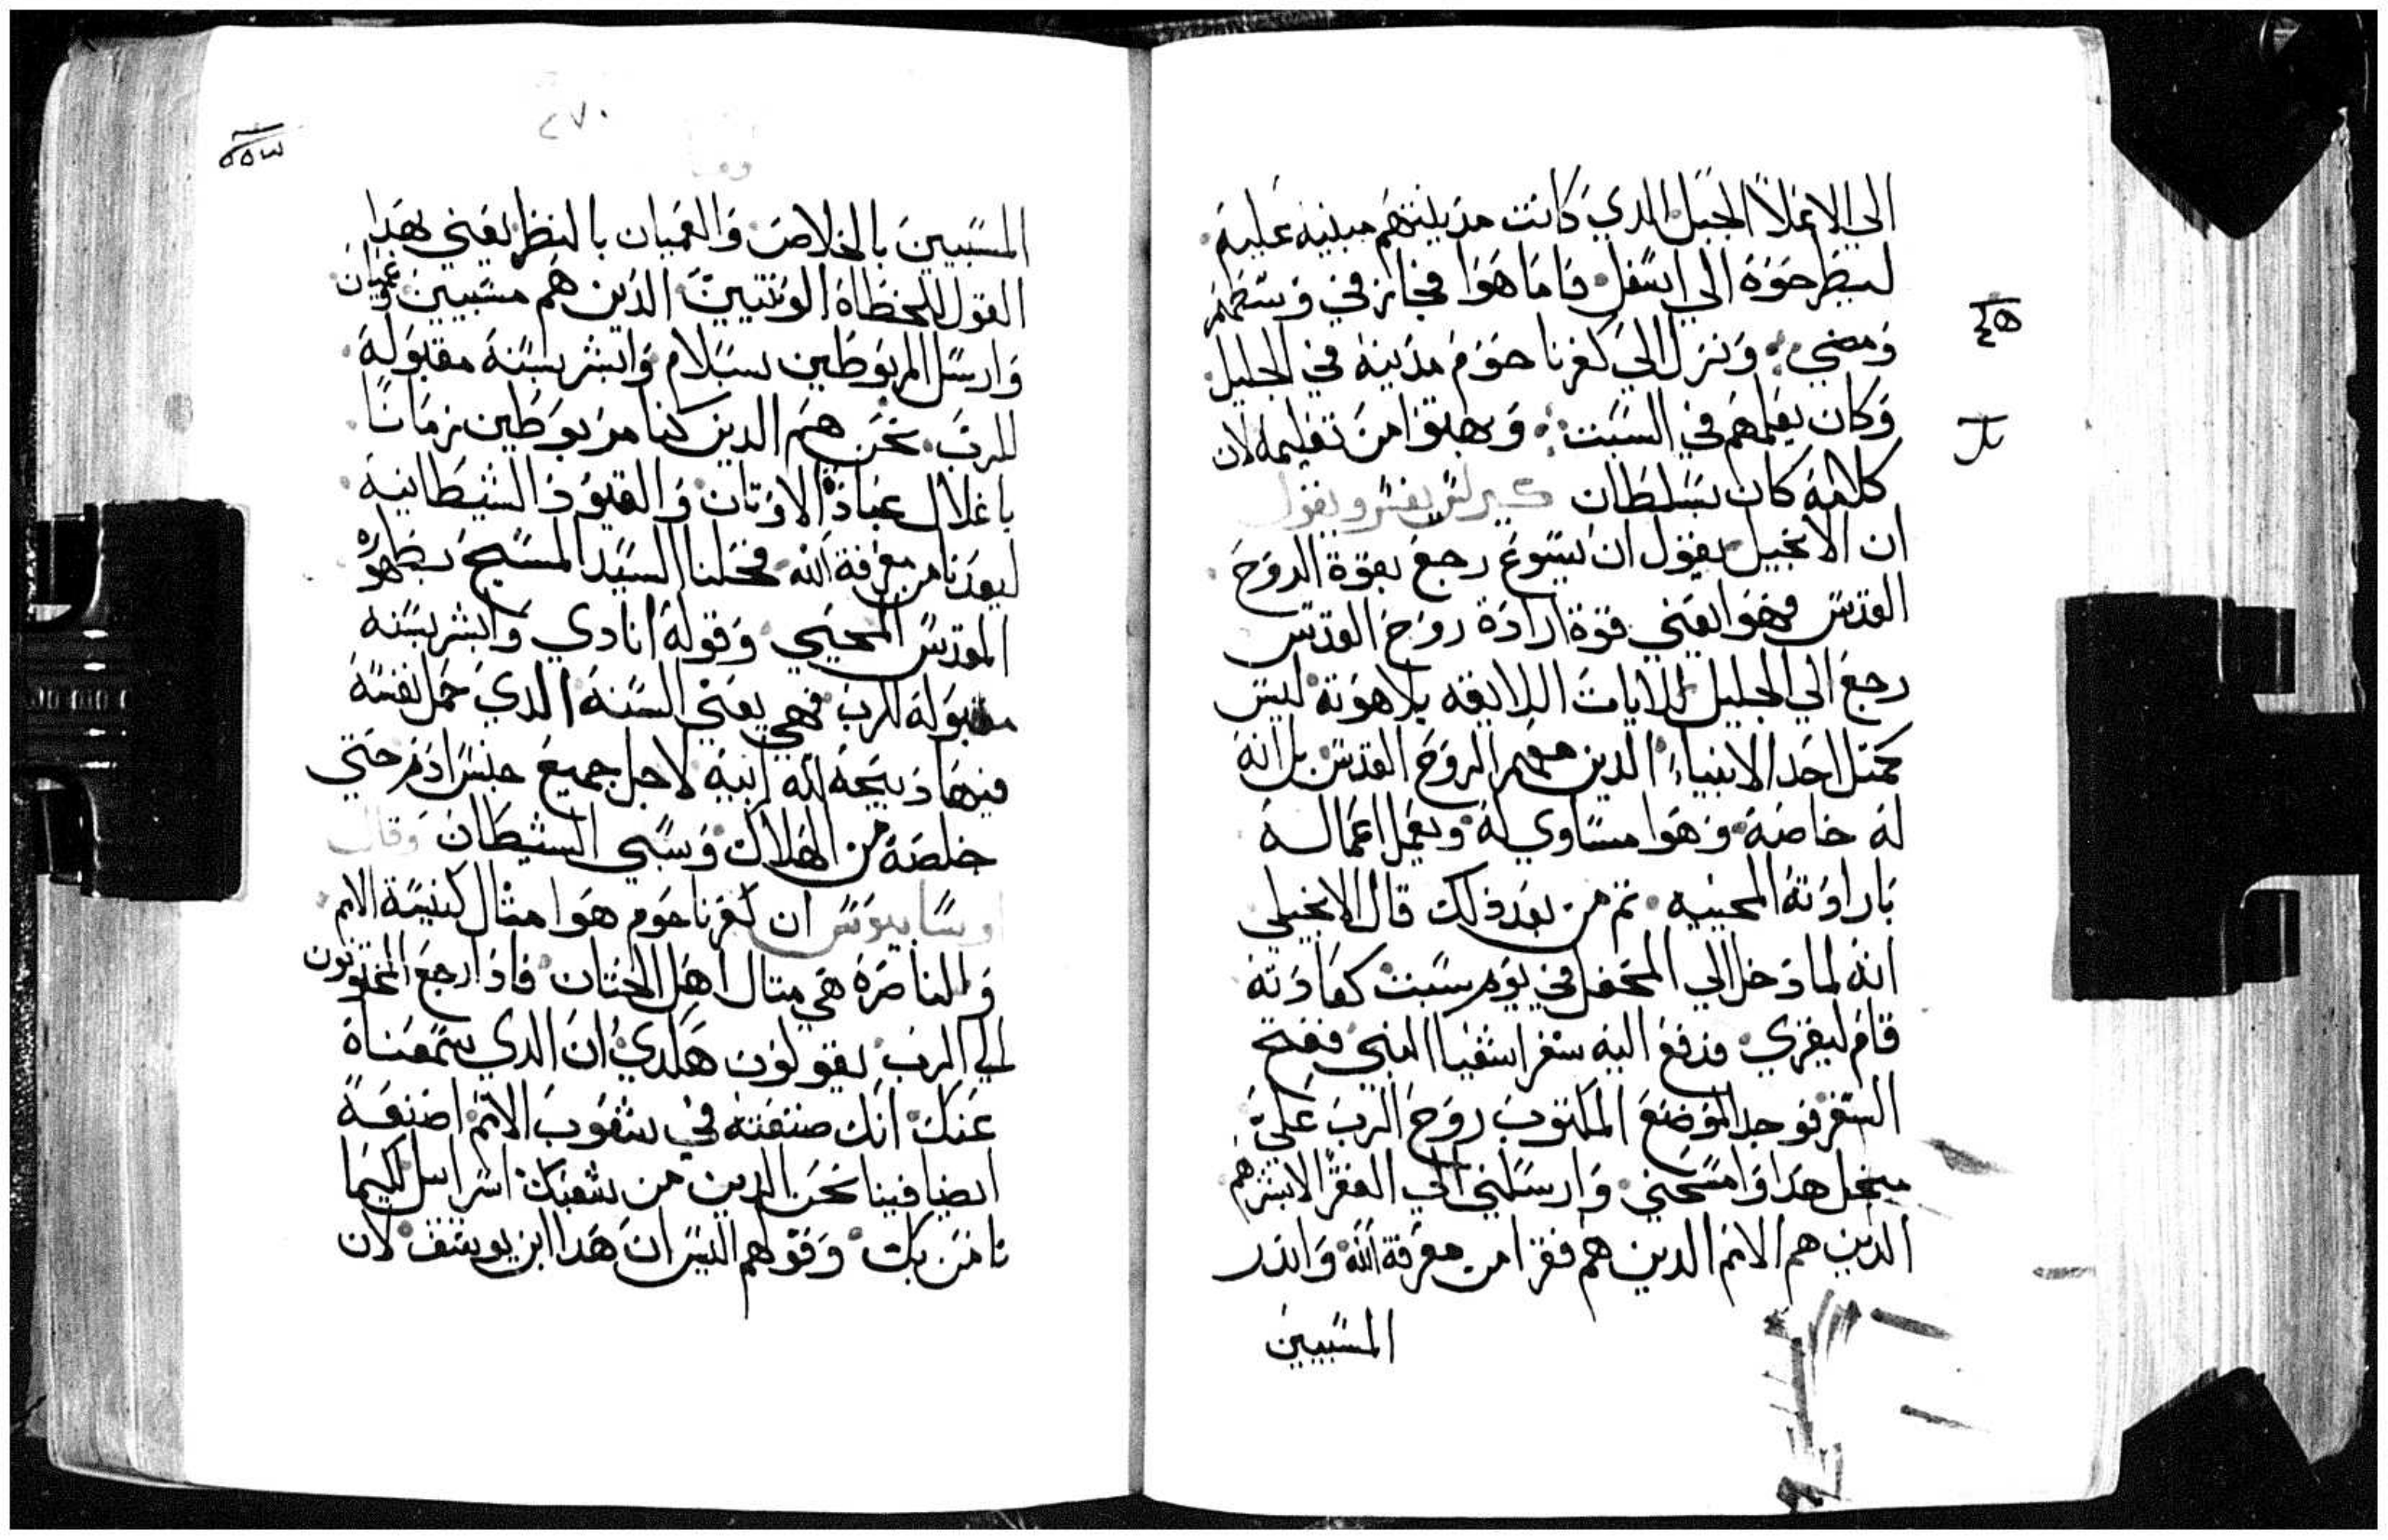 الي الاعلا الجبل الدي كانت مدينتهم مبنية عليه
ليطرحوه الي اسفل فاما هوا فجاز في وسطهم
ومضي ونزل الي كفرناحوم مدينه في الجليل
وكان يعلمهم في السبت وبهتوا من تعليمه لان
كلامه كان بسلطان كيرلس يفسر ويقول
ان الانجيل يقول ان يسوع رجع بقوة الروح
القدس فهوا يعني قوة ارادة روح القدس
رجع الي الجليل للايات اللايقه بلاهوته ليس
كمتل احد الانبياء الدين معهم الروح القدس بل انه
له خاصة وهوا مساوي له ويعمل اعماله
بارادته المحييه تم من بعد ذلك قال الانجيلي
انه لما دخل الي المحفل في يوم سبت كعادته
قام ليقري فدفع اليه سفر اشعيا النبي ففتح
السفر فوجد الموضع المكتوب روح الرب علي
من اجل هدا وامسحني وارسلني الي الفقرا لابشرهم
الدين هم الامم الدين هم فقرا من معرفة الله واندر
المسبيين
٢٧٠
المسبيين بالخلاص والعميان بالنظر يعني بهدا
القول للخطاة الوتنيين الدين هم مسبيين وعميان
وارسل المربوطين بسلام وابشر بسنة مقبولة
للرب نحن هم الدين كنا مربوطين زمانا
باغلال عبادة الاوتان والقيود الشيطانية
لبعدنا من معرفة الله فحلنا السيد المسيح بظهوره
المقدس المحيي وقوله انادي وابشر بسنه
مقبولة للرب فهي يعني السنة الدي جعل نفسه
فيها دبيحة لله ابيه لاجل جميع جنس ادم حتي
خلصه من الهلاك وسبي الشيطان وقال
اوسابيوس ان كفرناحوم هوا متال كنيسة الامم
والناصرة هي متال اهل الختان فادا رجع المختونون
الي الرب يقولون هكدي ان الدي سمعناة
عنك انك صنعته في شعوب الامم اصنعة
ايضا فينا نحن الدين من شعبك اسراييل لكيما
نامن بك وقولهم اليس ان هدا ابن يوسف لان